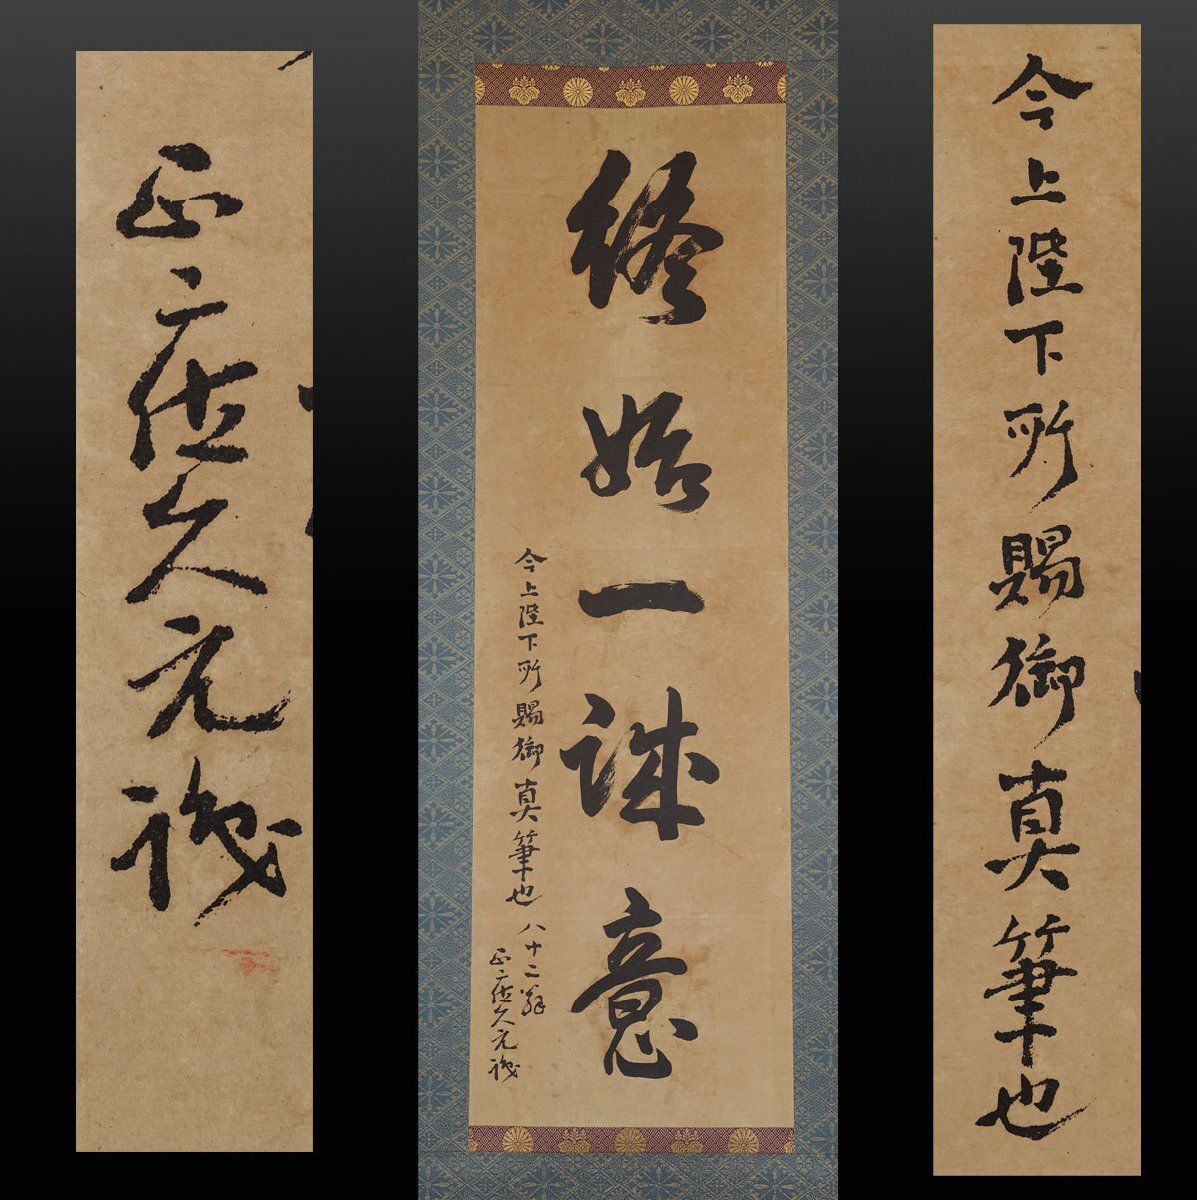 今上陛下所賜御真筆也
終始一誠意
今上陛下所賜御真筆也 八十二翁
正二位久元識
正二位久元識